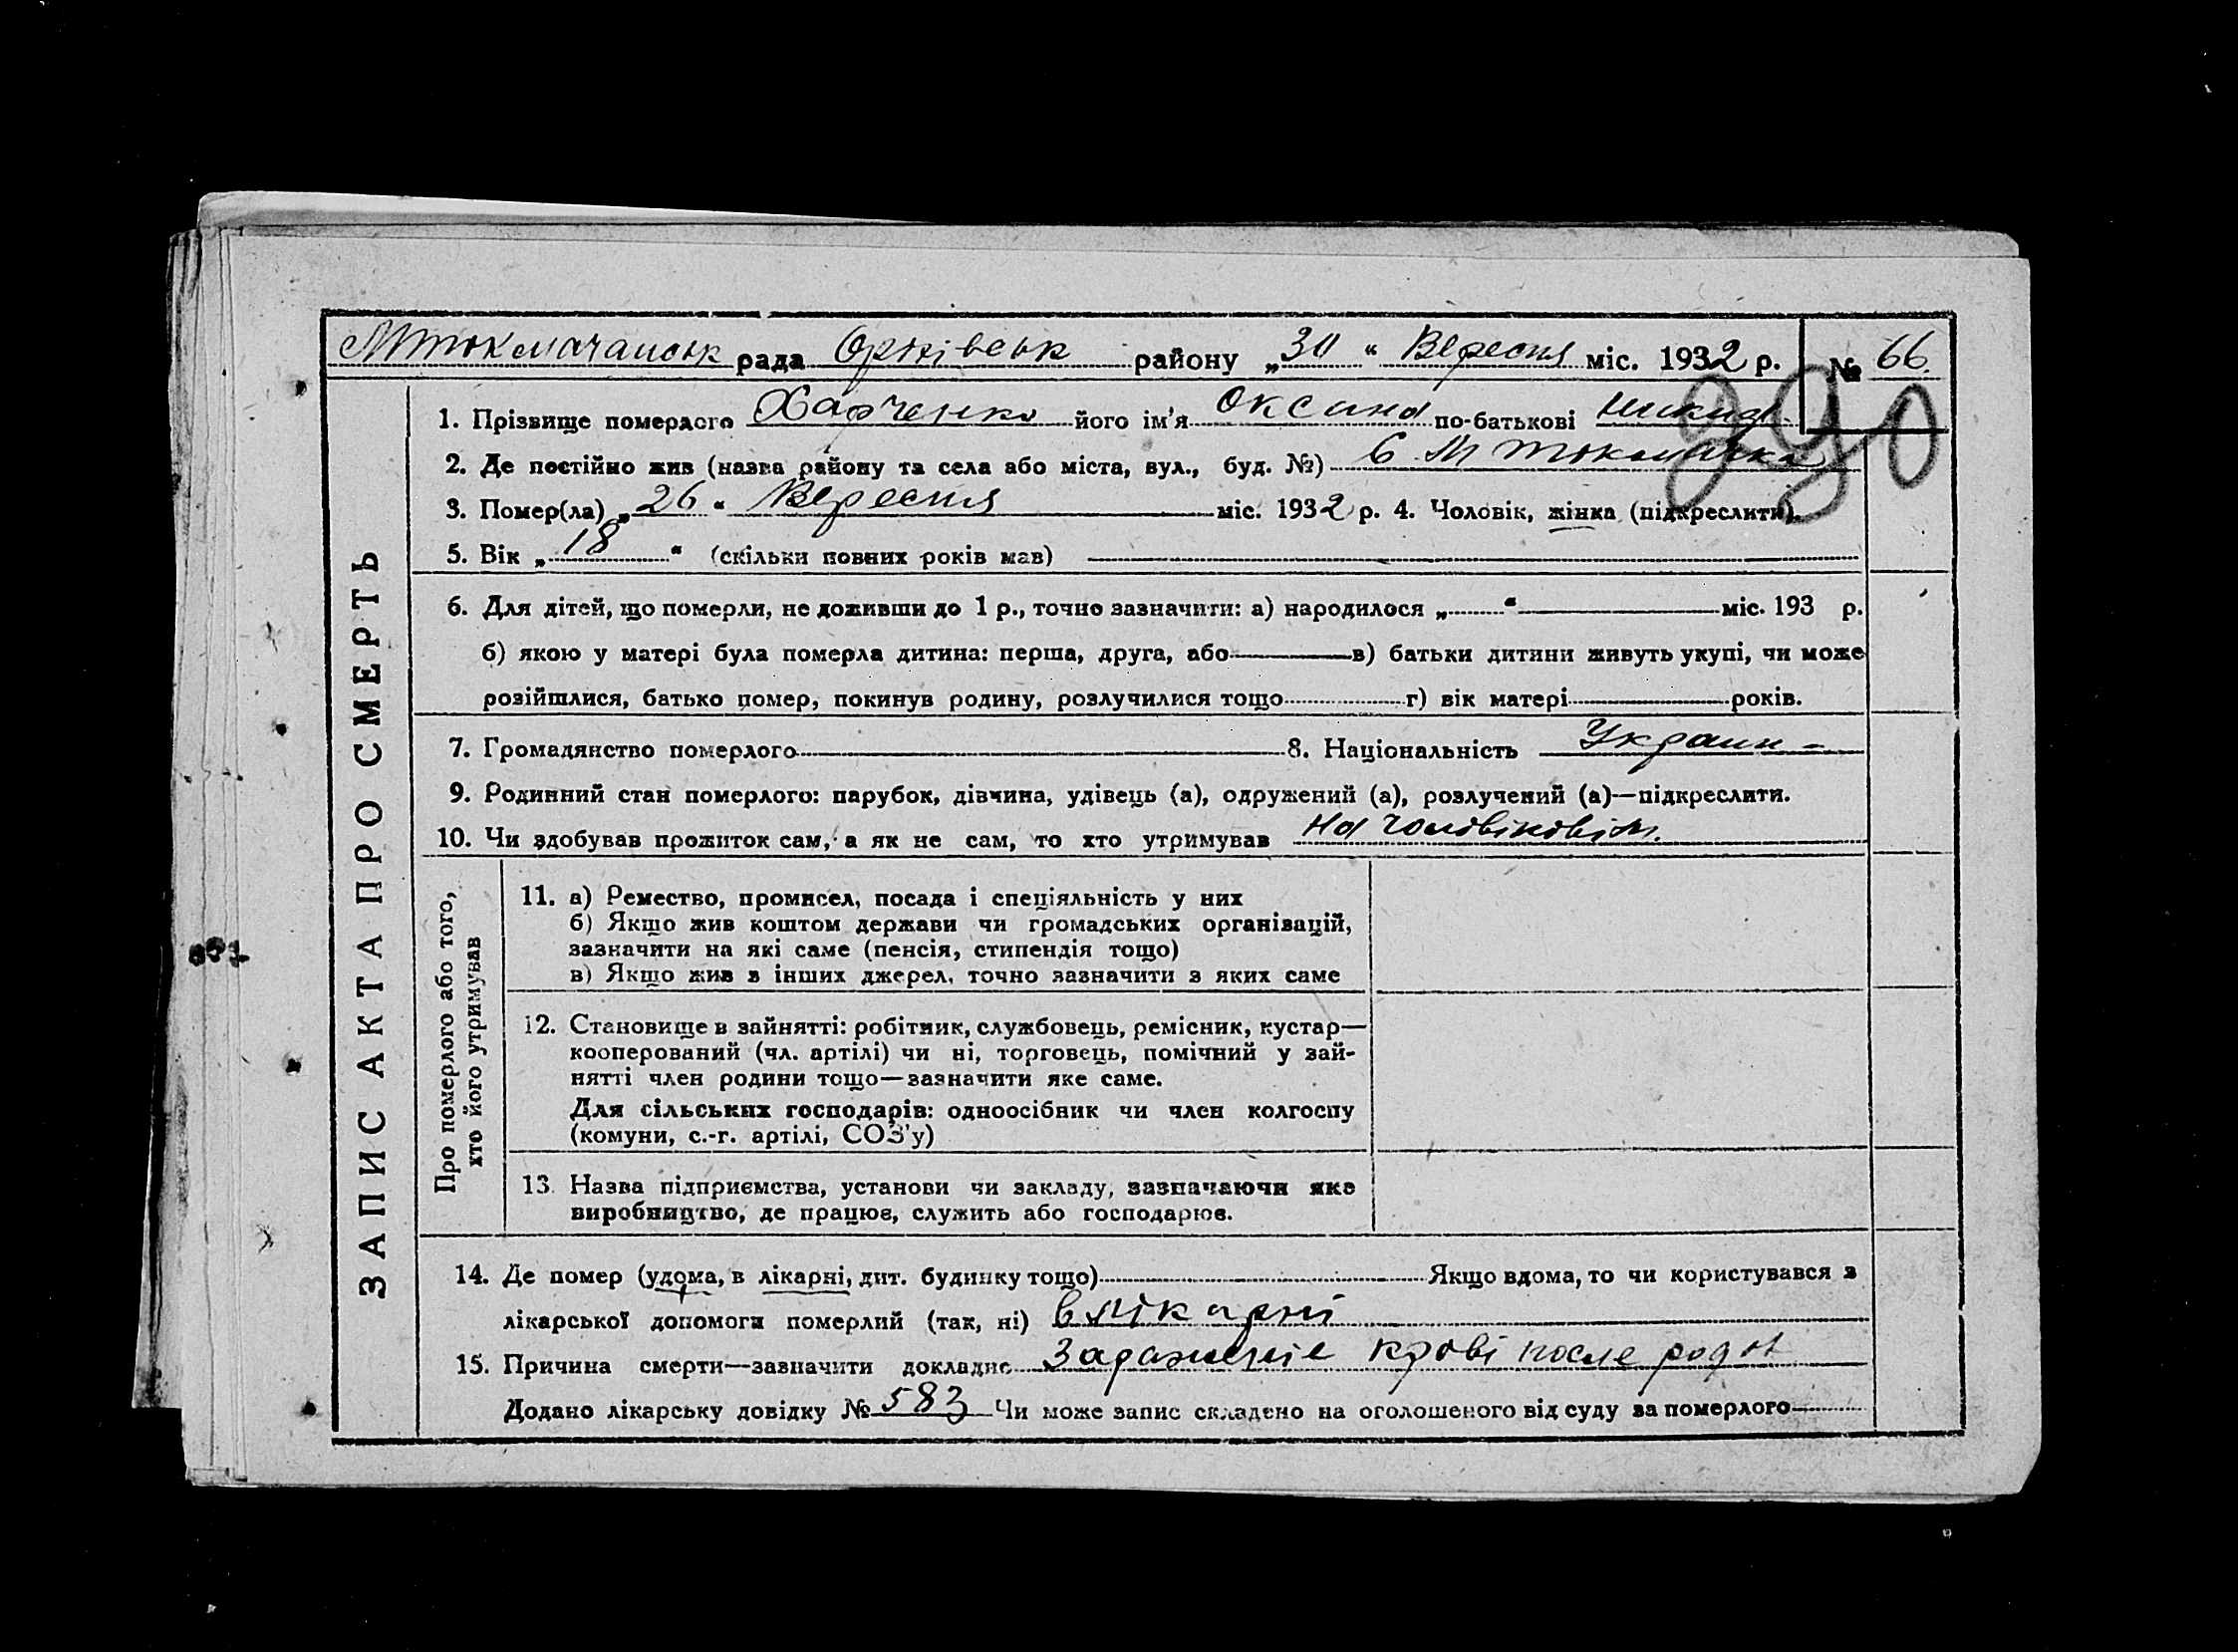 Мтокмачанськ рада Оріхівськ району „30“ Вересня міс. 1932 р. № 66.
990
ЗАПИС АКТА ПРО СМЕРТЬ
1. Прізвище померлого Харченко його ім'я Оксана по-батькові Никид
2. Де постійно жив (назва району та села або міста, вул., буд. №) в М Токмачка
3. Помер(ла) „26“ Вересня міс. 1932 р. 4. Чоловік, жінка (підкреслити).
5. Вік „18“ (скільки повних років мав)
6. Для дітей, що померли, не доживши до 1 р., точно зазначити: а) народилося „ “ міс. 193 р.
б) якою у матері була померла дитина: перша, друга, або в) батьки дитини живуть укупі, чи може
розійшлися, батько помер, покинув родину, розлучилися тощо г) вік матері років.
7. Громадянство померлого 8. Національність Украин-
9. Родинний стан померлого: парубок, дівчина, удівець (а), одружений (а), розлучений (а)—підкреслити.
10. Чи здобував прожиток сам, а як не сам, то хто утримував на чоловіковім.
Про померлого або того,
хто його утримував
11. а) Ремество, промисел, посада і спеціяльність у них
б) Якщо жив коштом держави чи громадських організацій,
зазначити на які саме (пенсія, стипендія тощо)
в) Якщо жив з інших джерел, точно зазначити з яких саме
12. Становище в зайнятті: робітник, службовець, ремісник, кустар—
кооперований (чл. артілі) чи ні, торговець, помічний у зай-
нятті член родини тощо—зазначити яке саме.
Для сільських господарів: одноосібник чи член колгоспу
(комуни, с.-г. артілі, СОЗ'у)
13. Назва підприємства, установи чи закладу, зазначаючи яке
виробництво, де працює, служить або господарює.
14. Де помер (удома, в лікарні, дит. будинку тощо) Якщо вдома, то чи користувався з
лікарської допомоги померлий (так, ні) в лікарні
15. Причина смерти—зазначити докладно Заражение крові после родов
Додано лікарську довідку № 583 Чи може запис складено на оголошеного від суду за померлого